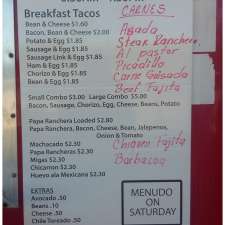 Breakfast Tacos
Bean & Cheese $1.60
Bacon, Bean & Cheese $2.00
Potato & Egg $1.85
Sausage & Egg $1.85
Sausage Link & Egg $1.85
Ham & Egg $1.85
Chorizo & Egg $1.85
Bean & Egg $1.85
Small Combo $3.00 Large Combo $5.00
Bacon, Sausage, Chorizo, Egg, Cheese, Beans, Potato
Papa Ranchera Loaded $2.80
Papa Ranchera, Bacon, Cheese, Bean, Jalapenos,
Onion & Tomato
Machacado $2.30
Papa Rancheras $2.30
Migas $2.30
Chicarron $2.30
Huevo ala Mexicana $2.30
EXTRAS
Avocado .50
Beans .10
Cheese .50
Chile Toreado .50
CARNES
Asada
Steak Ranchero
Al pastor
Picadillo
Carne Guisada
Beef Fajita
Chicken Fajita
Barbacoa
MENUDO
ON
SATURDAY